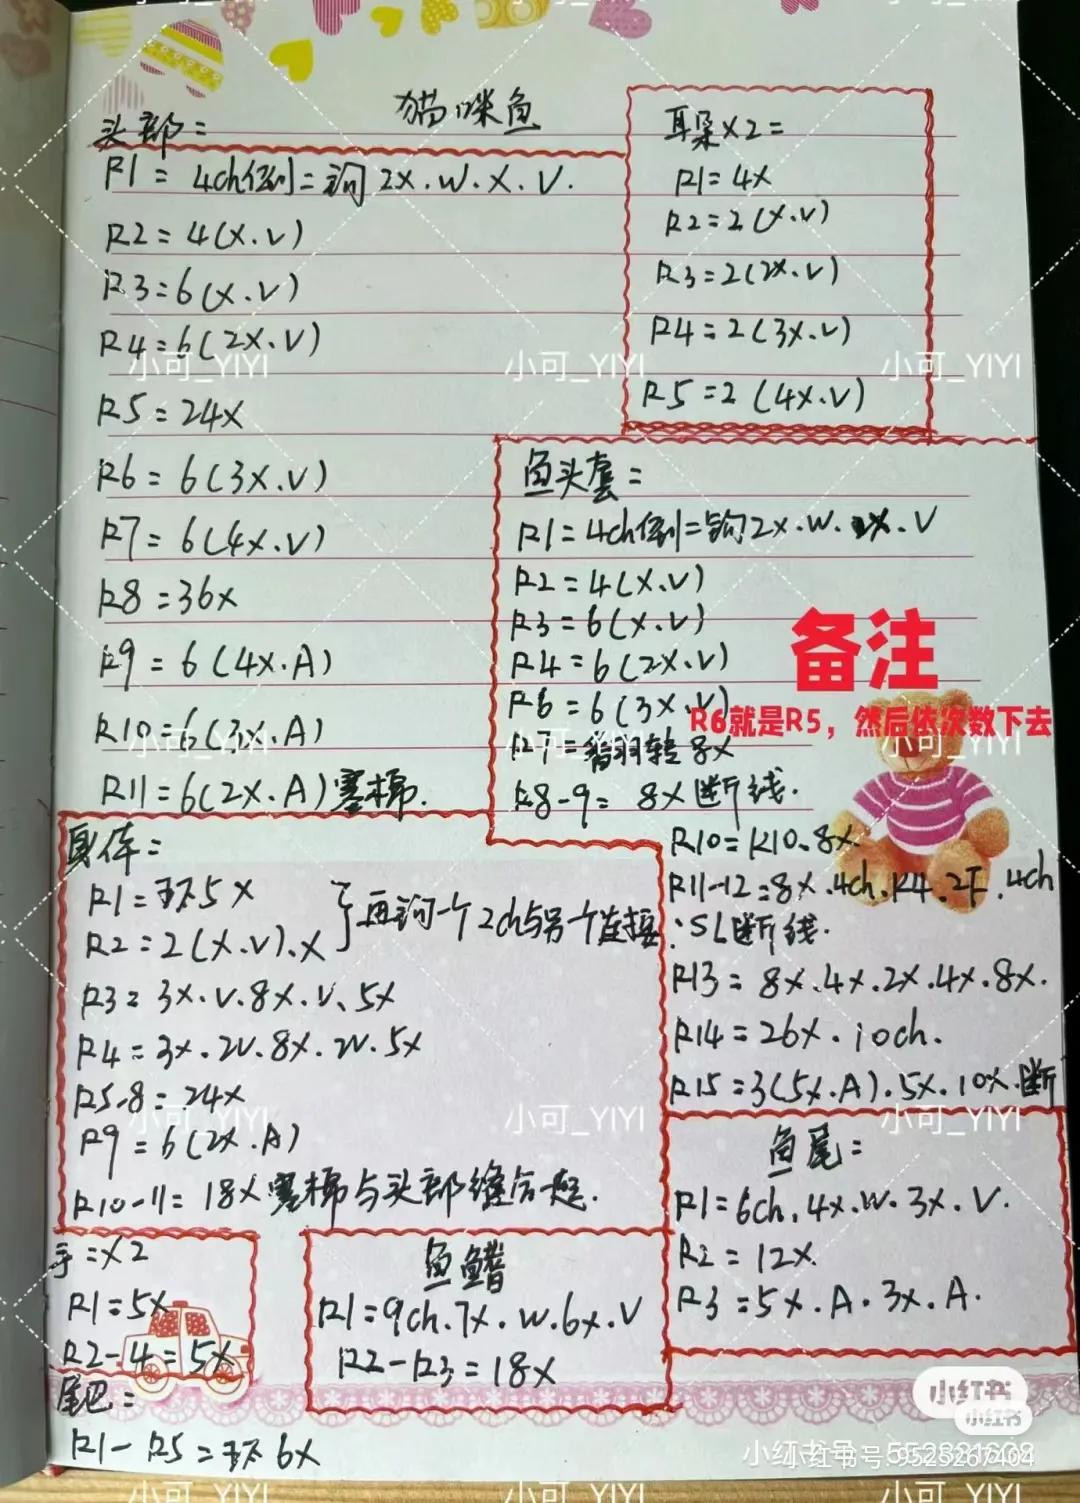 猫咪鱼
头部:
R1 = 4ch倒=钩 2X.W.X.V.
R2 = 4(X.V)
R3 = 6(X.V)
R4 = 6(2X.V)
R5 = 24X
R6 = 6(3X.V)
R7 = 6(4X.V)
R8 = 36X
R9 = 6(4X.A)
R10 = 6(3X.A)
R11 = 6(2X.A)塞棉.
耳朵X2=
R1=4X
R2=2(X.V)
R3=2(2X.V)
R4=2(3X.V)
R5=2(4X.V)
鱼头套:
R1=4ch倒=钩2X.W.X.V
R2=4(X.V)
R3=6(X.V)
R4=6(2X.V)
R6=6(3X.V)
备注
R6就是R5，然后依次数下去
R7= 8X
R8-9= 8X断线.
R10=K10.8X
R11-12=8X.4ch.K4.2F.4ch
:SL断线.
R13=8X.4X.2X.4X.8X.
R14=26X.10ch.
R15=3(5X.A).5X.10X.断
身体:
R1=环5X
R2=2(X.V).X
再钩一个2ch与另一个连接
R3=3X.V.8X.V.5X
R4=3X.2V.8X.2V.5X
R5-8=24X
R9=6(2X.A)
R10-11=18X塞棉与头部缝合一起.
鱼尾:
R1=6ch.4X.W.3X.V.
R2=12X
R3=5X.A.3X.A.
手=X2
R1=5X
R2-4=5X
鱼鳍
R1=9ch.7X.W.6X.V
R2-R3=18X
尾巴:
R1-R5=环6X
小可_YIYI
小可_YIYI
小可_YIYI
小可_YIYI
小可_YIYI
小可_YIYI
小红书
小红书